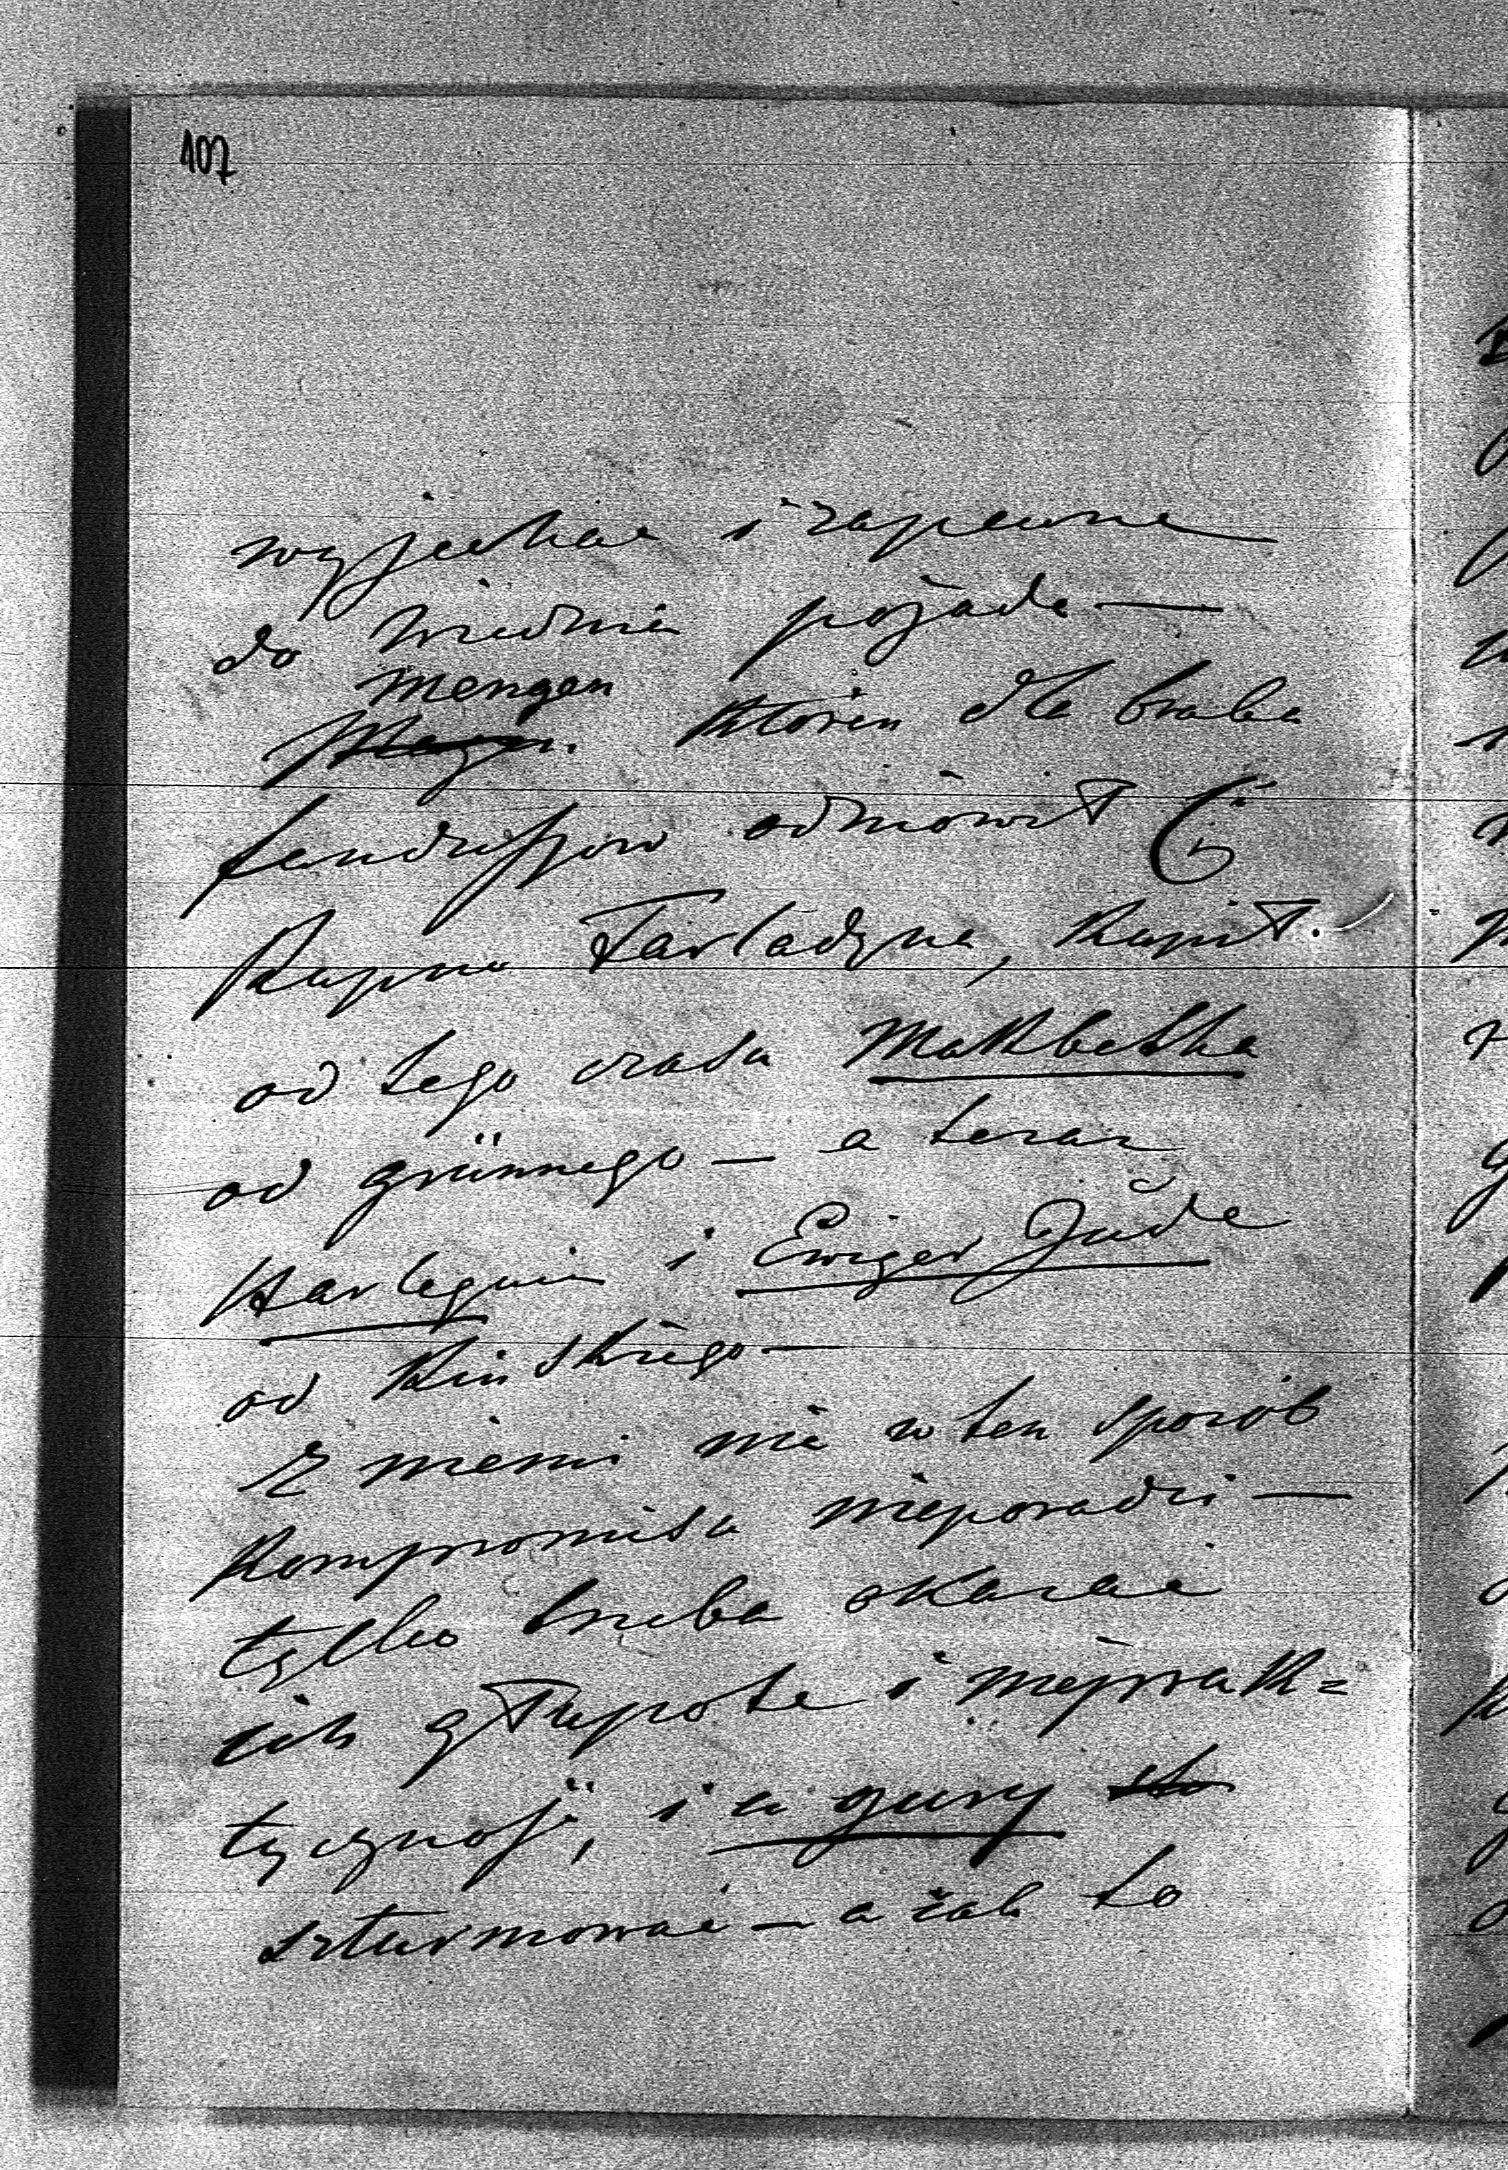 107
wyjechać i zapewne
do Wiednia pojade —
Mengen
któren dla braku
fenduszow odmówił Ci
kupna Farladyna, kupił.
od tego czasu Makbetha
od grünnego — a teraz
Harlequin i Ewiger Jude
od Kinskiego —
Z niemi nie w ten sposób
kompromisu nieporadzi —
tylko trzeba okazać
ich głupote i nieprak=
tyczność, i a gury to
szturmować — a żak to